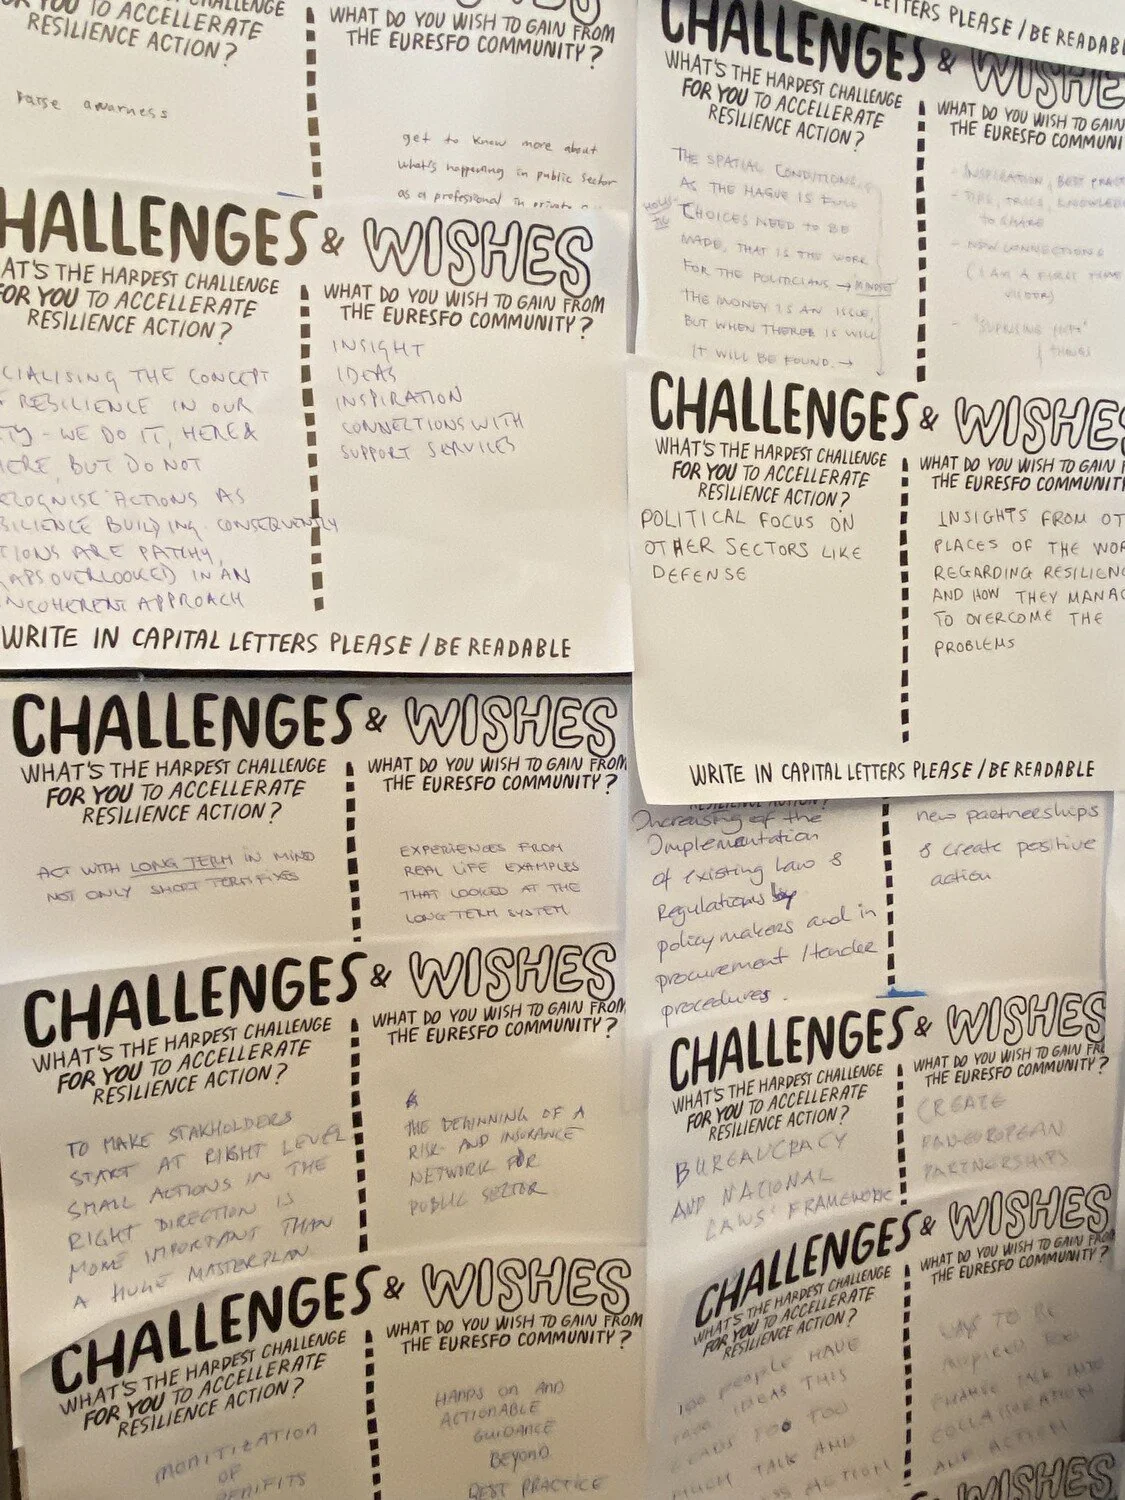 CHALLENGE
FOR YOU TO ACCELLERATE
RESILIENCE ACTION?
WHAT DO YOU WISH TO GAIN FROM
THE EURESFO COMMUNITY?
raise awarness
get to know more about
what's happening in public sector
as a professional in private
HALLENGES & WISHES
AT'S THE HARDEST CHALLENGE
FOR YOU TO ACCELLERATE
RESILIENCE ACTION?
WHAT DO YOU WISH TO GAIN FROM
THE EURESFO COMMUNITY?
CIALISING THE CONCEPT
RESILIENCE IN OUR
TY - WE DO IT, HERE &
HERE, BUT DO NOT
ECOGNISE ACTIONS AS
SILIENCE BUILDING. CONSEQUENTLY
TIONS ARE PATCHY,
GAPS OVERLOOKED IN AN
INCOHERENT APPROACH
INSIGHT
IDEAS
INSPIRATION
CONNECTIONS WITH
SUPPORT SERVICES
WRITE IN CAPITAL LETTERS PLEASE / BE READABLE
LETTERS PLEASE / BE READABL
CHALLENGES & WISHE
WHAT'S THE HARDEST CHALLENGE
FOR YOU TO ACCELLERATE
RESILIENCE ACTION?
WHAT DO YOU WISH TO GAIN
THE EURESFO COMMUNI
THE SPATIAL CONDITIONS,
AS THE HAGUE IS FULL
CHOICES NEED TO BE
MADE, THAT IS THE WORK
FOR THE POLITICIANS → MINDSET
THE MONEY IS AN ISSUE,
BUT WHEN THERE IS WILL
IT WILL BE FOUND. →
- INSPIRATION, BEST PRACT
- TIPS, TRICS, KNOWLED
TO SHARE
- NEW CONNECTIONS
(I AM A FIRST TIME
VISITOR)
CHALLENGES & WISHES
WHAT'S THE HARDEST CHALLENGE
FOR YOU TO ACCELLERATE
RESILIENCE ACTION?
WHAT DO YOU WISH TO GAIN F
THE EURESFO COMMUNIT
POLITICAL FOCUS ON
OTHER SECTORS LIKE
DEFENSE
INSIGHTS FROM OT
PLACES OF THE WOR
REGARDING RESILIENC
AND HOW THEY MANAG
TO OVERCOME THE
PROBLEMS
WRITE IN CAPITAL LETTERS PLEASE / BE READABLE
CHALLENGES & WISHES
WHAT'S THE HARDEST CHALLENGE
FOR YOU TO ACCELLERATE
RESILIENCE ACTION?
WHAT DO YOU WISH TO GAIN FROM
THE EURESFO COMMUNITY?
ACT WITH LONG TERM IN MIND
NOT ONLY SHORT TERM FIXES
EXPERIENCES FROM
REAL LIFE EXAMPLES
THAT LOOKED AT THE
LONG TERM SYSTEM
Increasing of the
Implementation
of existing law &
Regulations by
policy makers and in
procurement / tender
procedures.
new partnerships
& create positive
action
CHALLENGES & WISHES
WHAT'S THE HARDEST CHALLENGE
FOR YOU TO ACCELLERATE
RESILIENCE ACTION?
WHAT DO YOU WISH TO GAIN FROM
THE EURESFO COMMUNITY?
TO MAKE STAKHOLDERS
START AT RIGHT LEVEL
SMALL ACTIONS IN THE
RIGHT DIRECTION IS
MORE IMPORTANT THAN
A HUGE MASTERPLAN
THE BEGINNING OF A
RISK- AND INSURANCE
NETWORK FOR
PUBLIC SECTOR
CHALLENGES & WISHES
WHAT'S THE HARDEST CHALLENGE
FOR YOU TO ACCELLERATE
RESILIENCE ACTION?
WHAT DO YOU WISH TO GAIN FR
THE EURESFO COMMUNITY?
BUREAUCRACY
AND NATIONAL
LAWS' FRAMEWORK
CREATE
PAN-EUROPEAN
PARTNERSHIPS
CHALLENGES & WISHES
WHAT'S THE HARDEST CHALLENGE
FOR YOU TO ACCELLERATE
RESILIENCE ACTION?
WHAT DO YOU WISH TO GAIN FROM
THE EURESFO COMMUNITY?
MONITIZATION
OF
BENEFITS
HANDS ON AND
ACTIONABLE
GUIDANCE
BEYOND
BEST PRACTICE
CHALLENGES & WISHES
WHAT'S THE HARDEST CHALLENGE
FOR YOU TO ACCELLERATE
RESILIENCE ACTION?
WHAT DO YOU WISH TO GAIN FROM
THE EURESFO COMMUNITY?
PEOPLE HAVE
IDEAS THIS
LEADS TOO TOO
MUCH TALK AND
ACTION
WAYS TO BE
CHANGE TALK INTO
COLLABORATION
AND ACTION
WISHES